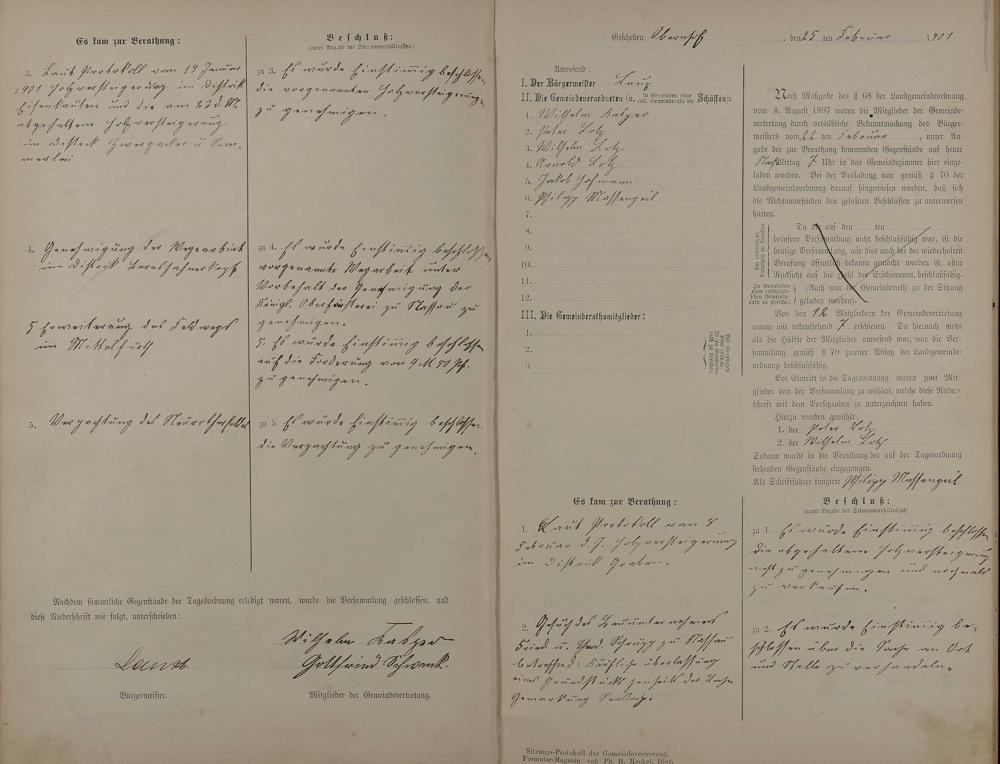 Es kam zur Berathung:
Beschluß:
(unter Angabe des Stimmenverhältnisses.)
3. Laut Protokoll vom 19 Januar
1901 Holzversteigerung im Distrikt
Eisenkauten und die am 22 d. M.
abgehaltene Holzversteigerung
im Distrikt
zu 3. Es wurde Einstimmig beschlossen
die vorgenannten Holzversteigerungen
zu genehmigen.
4. Genehmigung der Wegearbeit
im Distrikt
zu 4. Es wurde Einstimmig beschlossen
vorgenannte Wegarbeit unter
Vorbehalt der Genehmigung der
Königl. Oberförsterei zu Nassau zu
genehmigen.
5 Erweiterung des Feldwegs
im
5. Es wurde Einstimmig beschlossen
auf die Forderung von 9 M 40 Pf.
zu genehmigen.
5. Verpachtung des
zu 5. Es wurde Einstimmig beschlossen
die Verpachtung zu genehmigen.
Nachdem sämmtliche Gegenstände der Tagesordnung erledigt waren, wurde die Versammlung geschlossen, und
diese Niederschrift wie folgt, unterschrieben:
Wilhelm
Gottfried Schwenk.
Bürgermeister.
Mitglieder der Gemeindevertretung.
Geschehen, den 25 ten Februar 1901
Anwesend:
I. Der Bürgermeister
II. Die Gemeindeverordneten (u. in Gemeinden ohne coll. Gemeinderath die Schöffen):
1. Wilhelm
2. Peter Lotz
3. Wilhelm Lotz
4. Arnold Lotz
5. Jakob Hofmann
6. Philipp Massengeil
7.
8.
9.
10.
11.
12.
III. Die Gemeinderathsmitglieder:
1.
2.
3.
Nach Maßgabe des § 68 der Landgemeindeordnung
vom 4. August 1897 waren die Mitglieder der Gemeinde-
vertretung durch ortsübliche Bekanntmachung des Bürger-
meisters vom 22 ten Februar, unter An-
gabe der zur Berathung kommenden Gegenstände auf heute
Nachmittag 7 Uhr in das Gemeindezimmer hier einge-
laden worden. Bei der Vorladung war gemäß § 70 der
Landgemeindeordnung darauf hingewiesen worden, daß sich
die Nichtanwesenden den gefaßten Beschlüssen zu unterwerfen
hätten.
Da die auf den ten
berufene Versammlung nicht beschlußfähig war, ist die
heutige Versammlung, wie dies auch bei der wiederholten
Berufung öffentlich bekannt gemacht worden ist, ohne
Rücksicht auf die Zahl der Erschienenen, beschlußfähig.
(Auch war der Gemeinderath zu der Sitzung
geladen worden).
Von den 12 Mitgliedern der Gemeindevertretung
waren wie nebenstehend 7 erschienen. Da hiernach mehr
als die Hälfte der Mitglieder anwesend war, war die Ver-
sammlung gemäß § 70 zweiter Absatz der Landgemeinde-
ordnung beschlußfähig.
Vor Eintritt in die Tagesordnung waren zwei Mit-
glieder von der Versammlung zu wählen, welche diese Nieder-
schrift mit dem Vorsitzenden zu unterzeichnen haben.
Hierzu wurden gewählt:
1. der Peter Lotz
2. der Wilhelm Lotz
Sodann wurde in die Berathung der auf der Tagesordnung
stehenden Gegenstände eingegangen.
Als Schriftführer fungirte Philipp Massengeil
Es kam zur Berathung:
Beschluß:
(unter Angabe des Stimmenverhältnisses)
1. Laut Protokoll von 8
Februar d. J. Holzversteigerung
im Distrikt Graben.
zu 1. Es wurde Einstimmig beschlossen
die abgehaltene Holzversteigerung
nicht zu genehmigen und nochmals
zu verkaufen.
2. Gesuch des Bauunternehmers
Fried u. Schrupp zu Nassau
betreffend: Käufliche Überlassung
eines Grundstücks jenseits der Lahn
Gemarkung
zu 2. Es wurde Einstimmig be-
schlossen über die Sache an Ort
und Stelle zu verhandeln.
Sitzungs-Protokoll der Gemeindevertretung.
Formular-Magazin von Ph. H. Meckel, Diez.